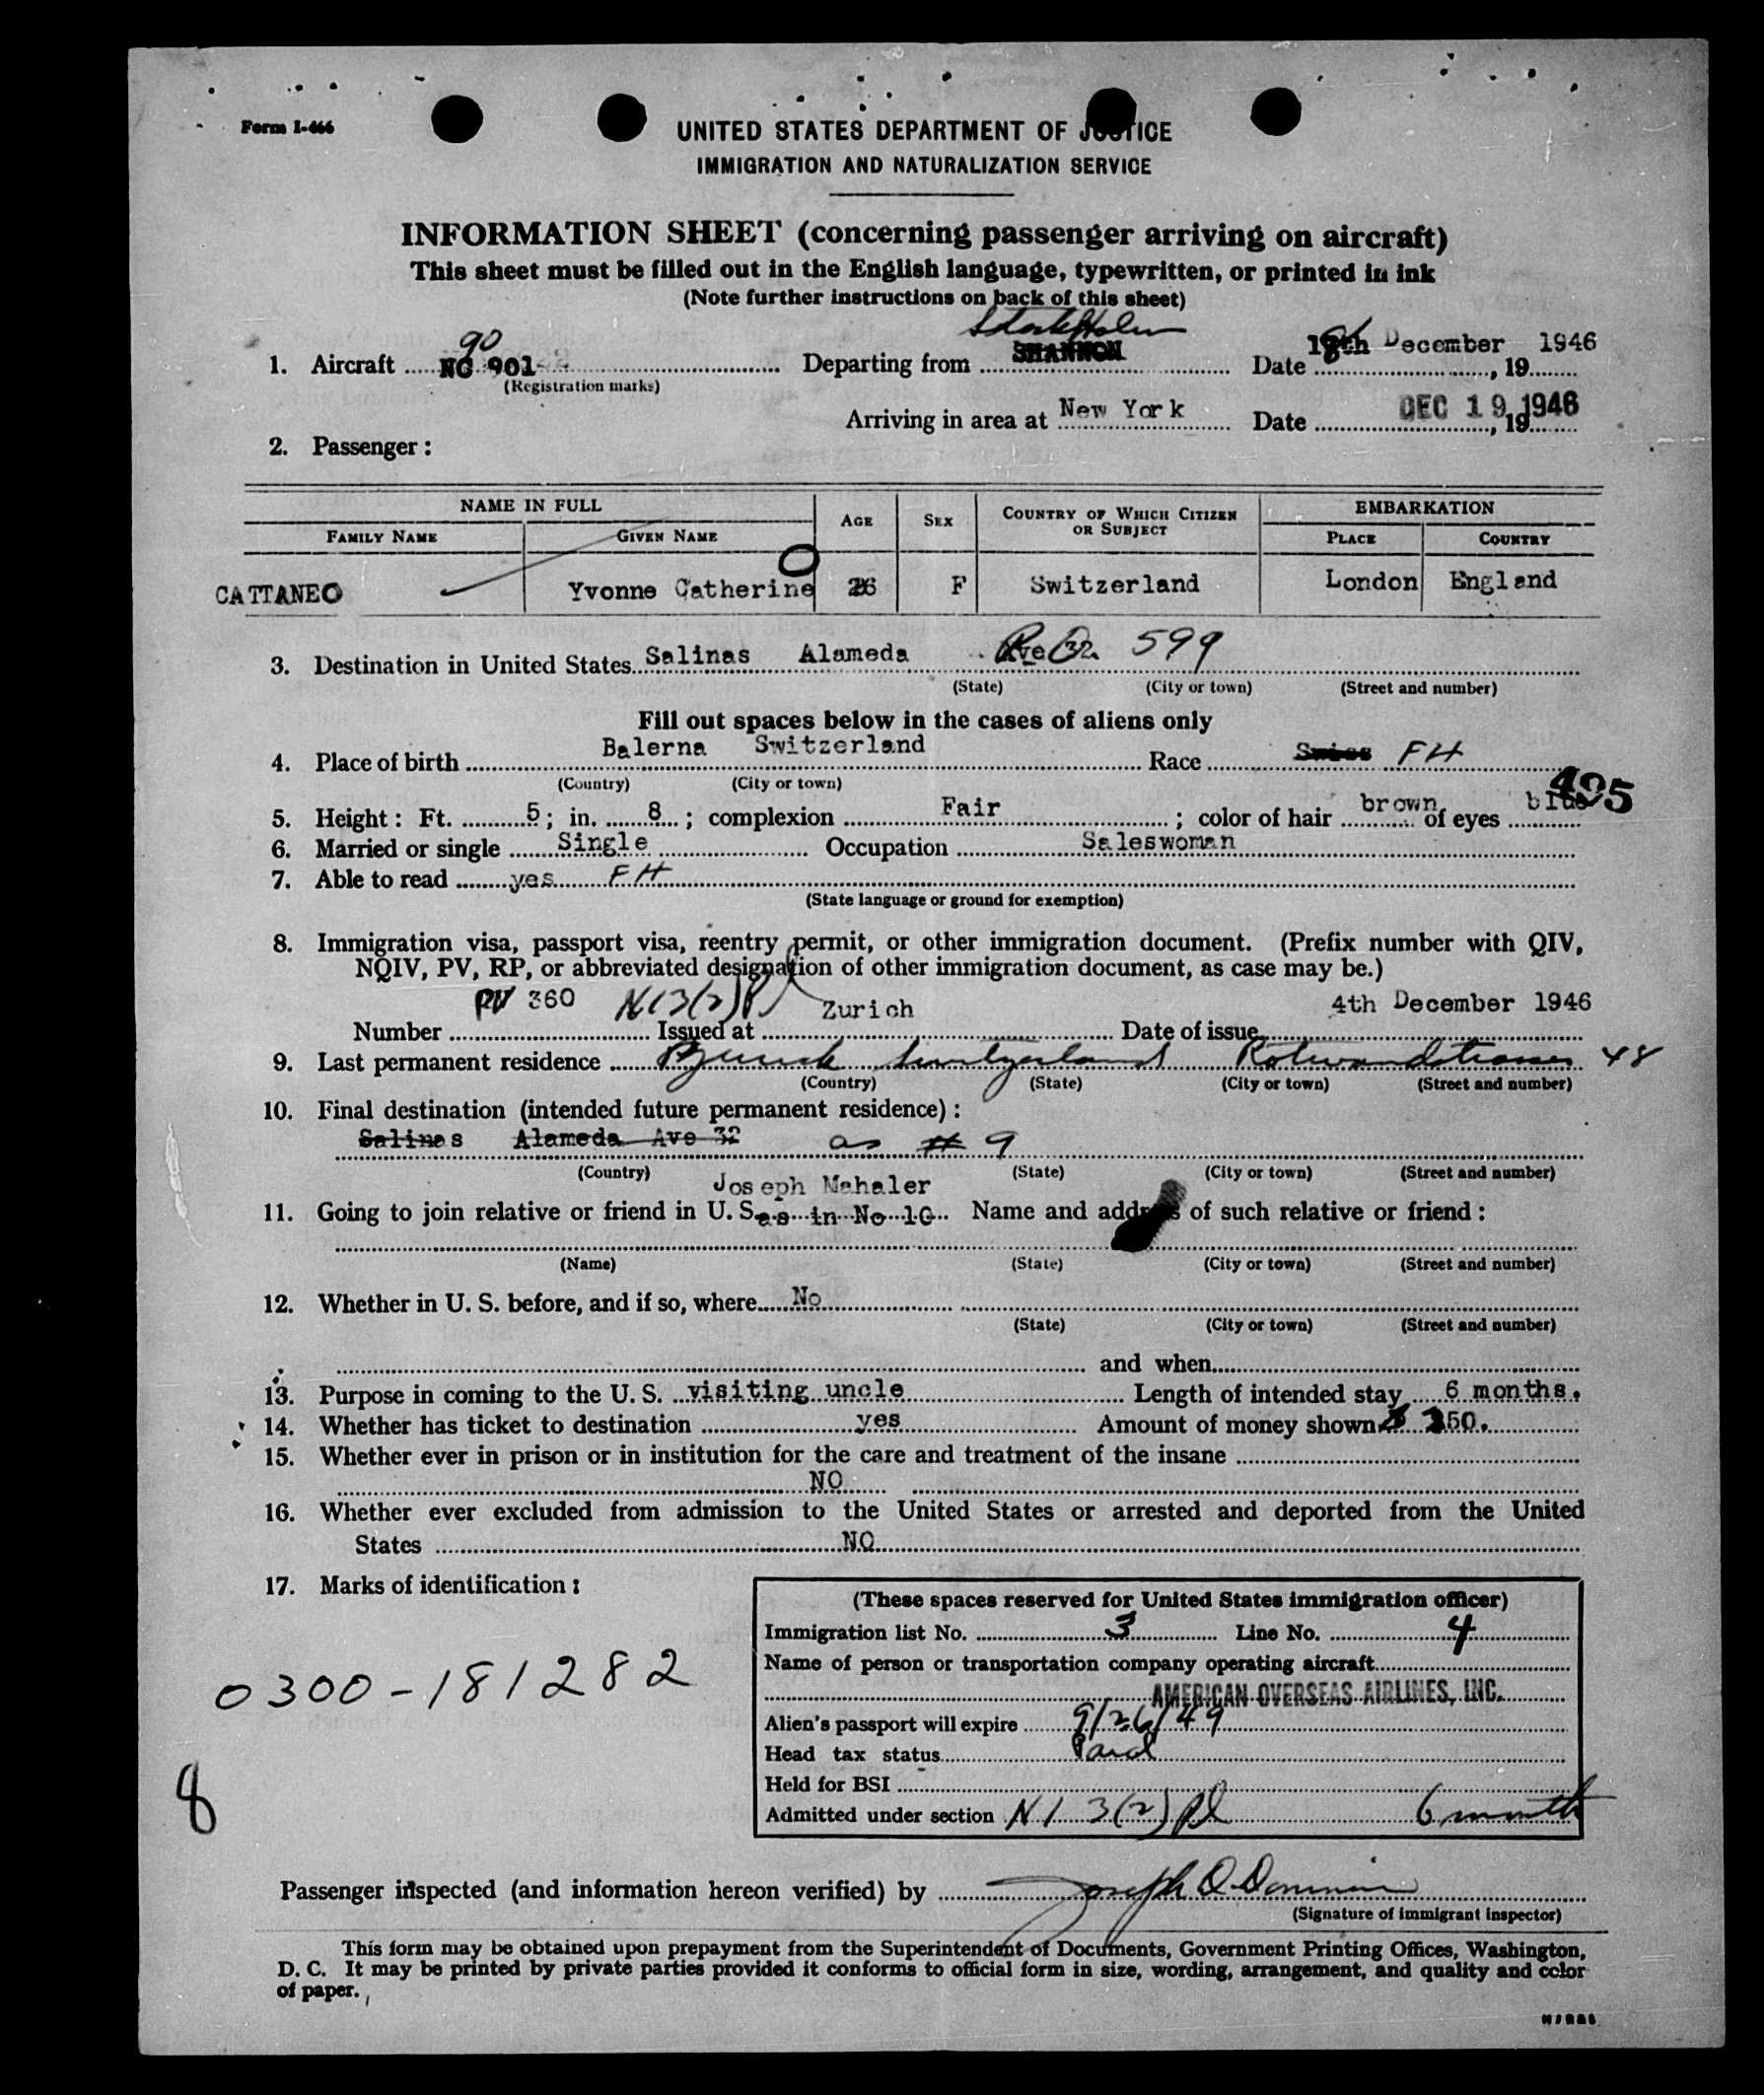 Form I-466
UNITED STATES DEPARTMENT OF JUSTICE
IMMIGRATION AND NATURALIZATION SERVICE
INFORMATION SHEET (concerning passenger arriving on aircraft)
This sheet must be filled out in the English language, typewritten, or printed in ink
(Note further instructions on back of this sheet)
Stockholm
1. Aircraft NC 901 90 Departing from SHANNON Date 18th December 1946, 19
(Registration marks)
Arriving in area at New York Date DEC 19 1946, 19
2. Passenger:
NAME IN FULL AGE SEX COUNTRY OF WHICH CITIZEN OR SUBJECT EMBARKATION
FAMILY NAME GIVEN NAME PLACE COUNTRY
CATTANEO Yvonne Catherine 26 F Switzerland London England
3. Destination in United States Salinas Alameda Ave 32 599
(State) (City or town) (Street and number)
Fill out spaces below in the cases of aliens only
4. Place of birth Balerna Switzerland Race Swiss FH
(Country) (City or town)
495
5. Height: Ft. 5; in. 8; complexion Fair; color of hair brown of eyes blue
6. Married or single Single Occupation Saleswoman
7. Able to read yes FH
(State language or ground for exemption)
8. Immigration visa, passport visa, reentry permit, or other immigration document. (Prefix number with QIV,
NQIV, PV, RP, or abbreviated designation of other immigration document, as case may be.)
Number PV 360 NI 3(2) Issued at Zurich Date of issue 4th December 1946
9. Last permanent residence Switzerland 48
(Country) (State) (City or town) (Street and number)
10. Final destination (intended future permanent residence):
Salinas Alameda Ave 32 as # 9
(Country) (State) (City or town) (Street and number)
Joseph Mahaler
11. Going to join relative or friend in U. S. as in No 10 Name and address of such relative or friend:
(Name) (State) (City or town) (Street and number)
12. Whether in U. S. before, and if so, where No
(State) (City or town) (Street and number)
and when
13. Purpose in coming to the U. S. visiting uncle Length of intended stay 6 months.
14. Whether has ticket to destination yes Amount of money shown 250.
15. Whether ever in prison or in institution for the care and treatment of the insane
NO
16. Whether ever excluded from admission to the United States or arrested and deported from the United
States NO
17. Marks of identification:
0300-181282
8
(These spaces reserved for United States immigration officer)
Immigration list No. 3 Line No. 4
Name of person or transportation company operating aircraft
AMERICAN OVERSEAS AIRLINES, INC.
Alien's passport will expire 9/26/49
Head tax status Paid
Held for BSI
Admitted under section NI 3(2) 6 months
Passenger inspected (and information hereon verified) by Joseph
(Signature of immigrant inspector)
This form may be obtained upon prepayment from the Superintendent of Documents, Government Printing Offices, Washington,
D. C. It may be printed by private parties provided it conforms to official form in size, wording, arrangement, and quality and color
of paper.